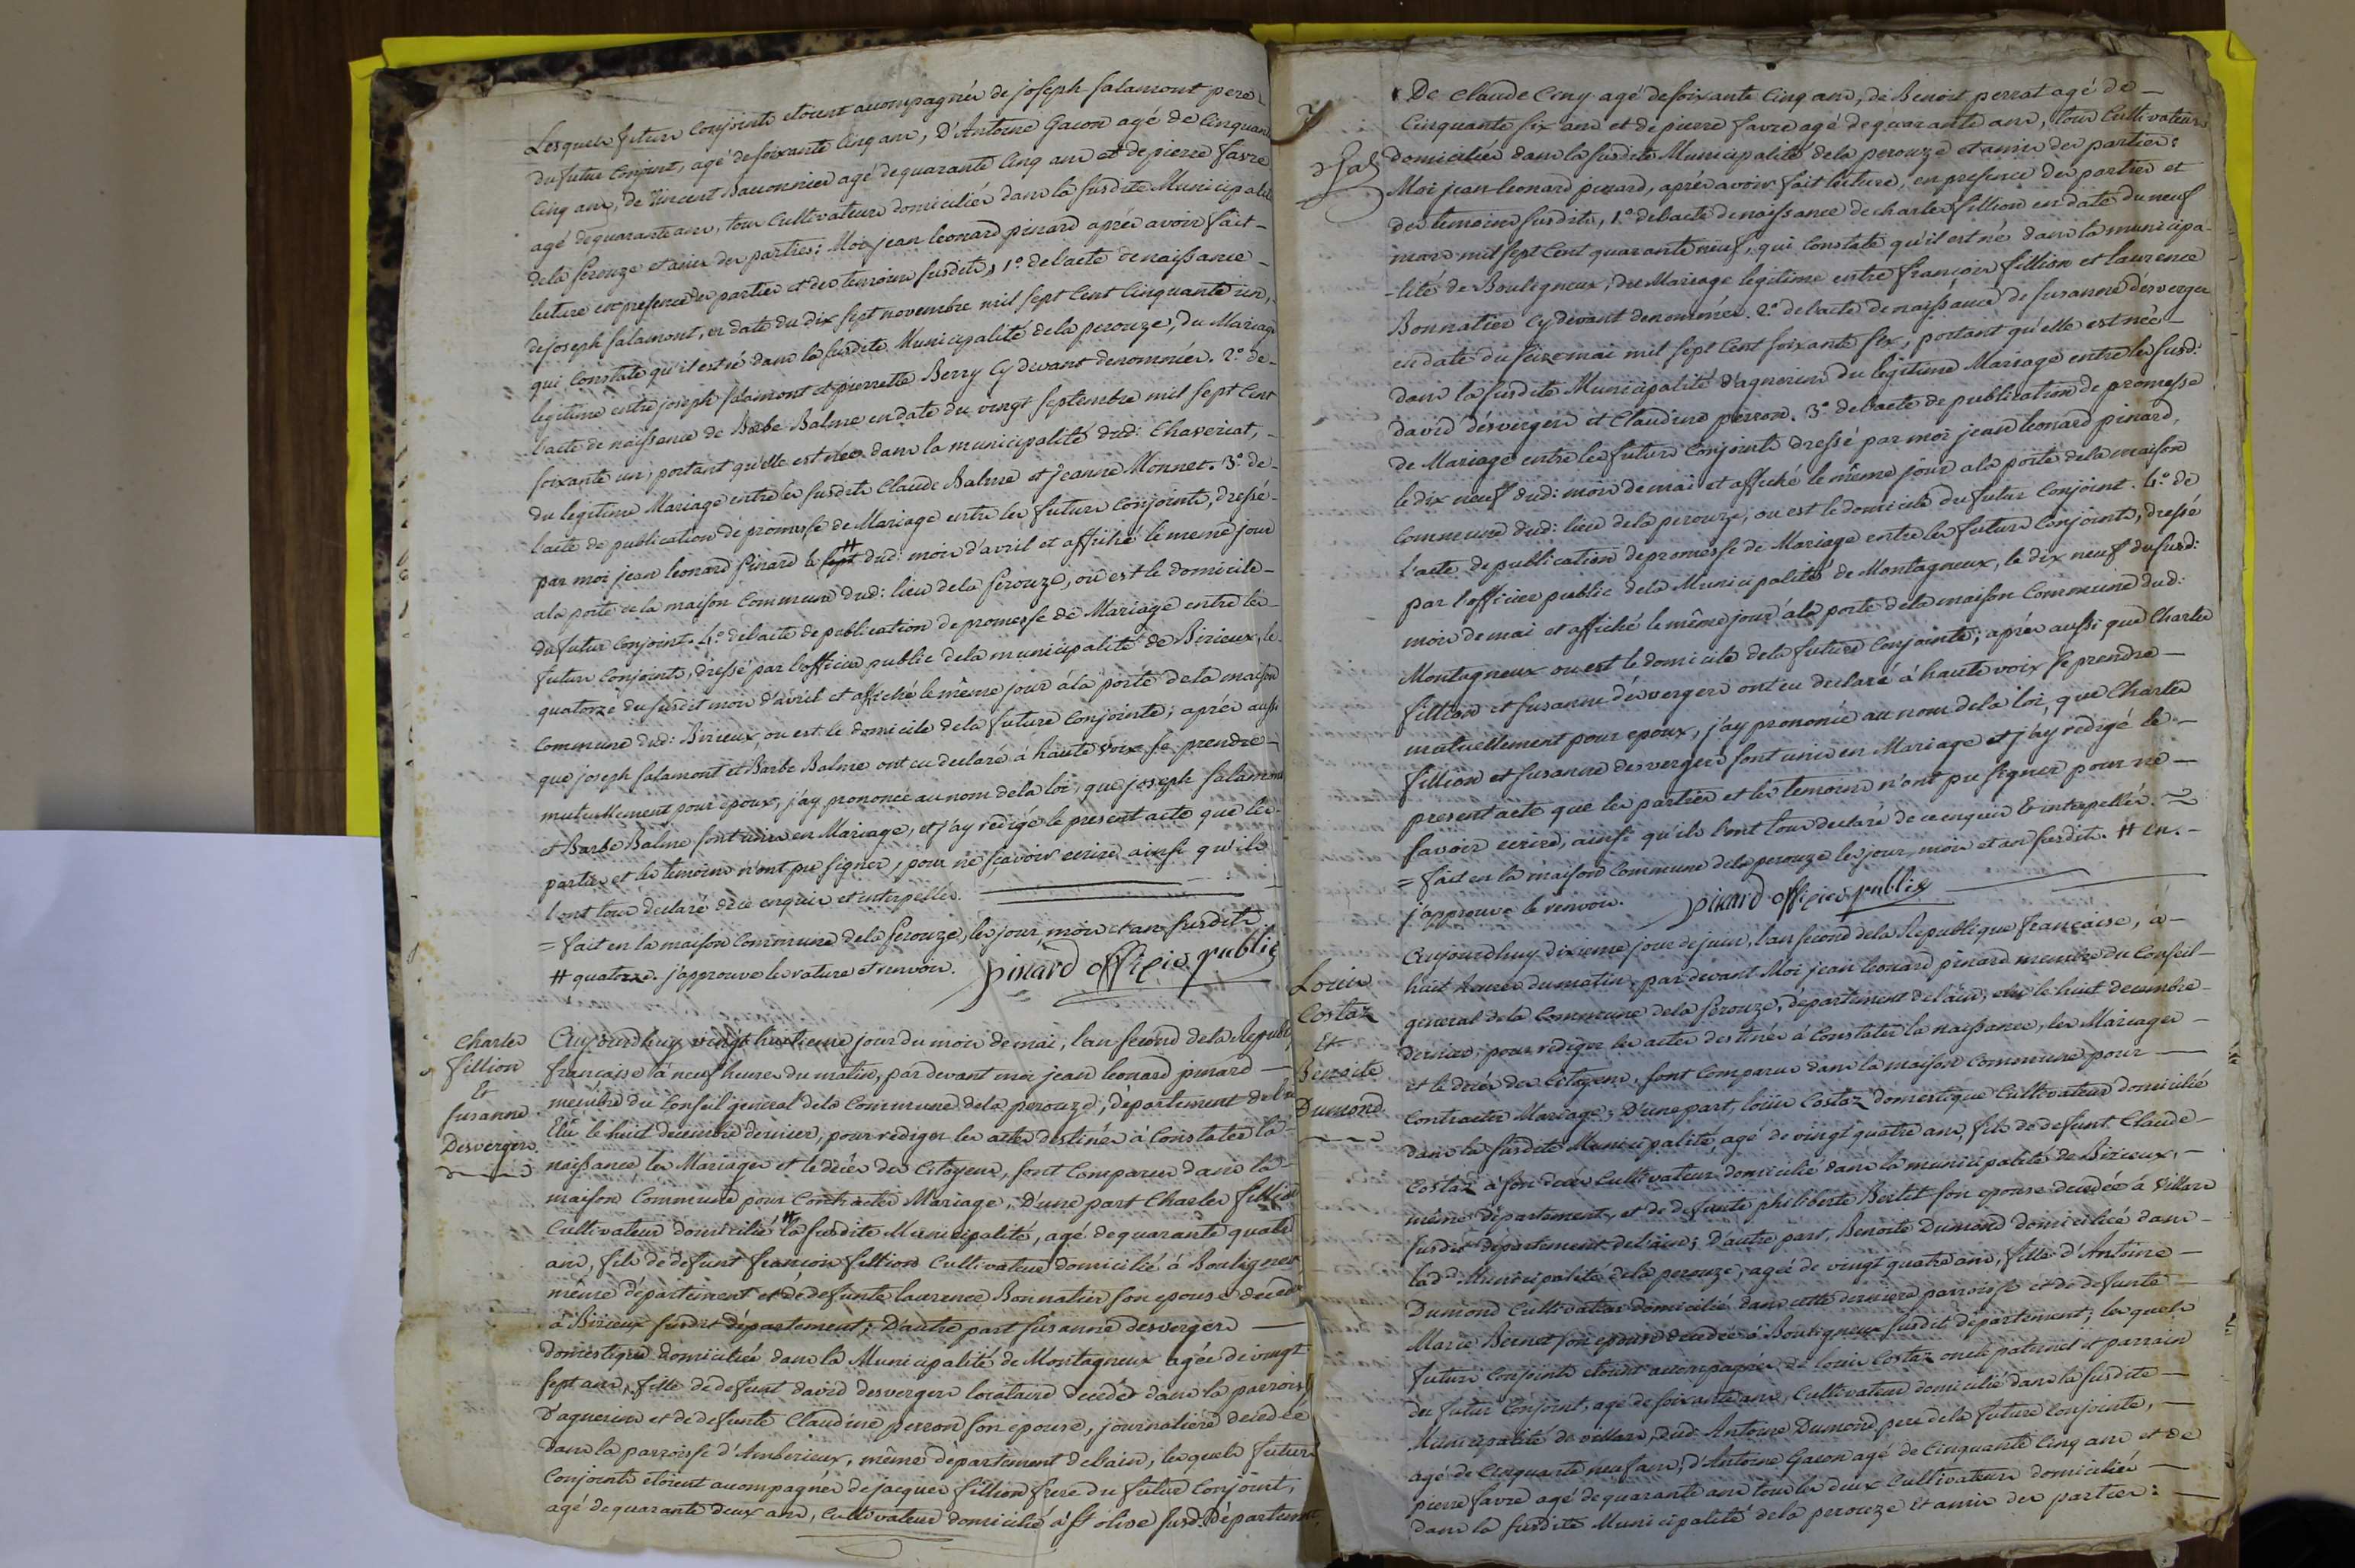 Lesquels futurs Conjoints etoient accompagnés de joseph Salamont pere
du futur Conjoint, agé de soixante Cinq ans, D'Antoine Gacon agé de Cinquante
Cinq ans, de Vincent Bauonnier agé de quarante Cinq ans et de pierre favre
agé de quarante ans, tous Cultivateurs domiciliés dans la susdite Municipalité
dela Perouze et amis des parties: Moi jean leonard pinard après avoir fait
lecture en presence des parties et des temoins susdits, 1.º de l'acte de naissance
de joseph Salamont, en date du dix sept novembre mil sept Cent Cinquante un,
qui Constate qu'il est né dans la susdite Municipalité dela perouze, du Mariage
legitime entre joseph Salamont et pierrette Berry Cy devant denommés. 2.º de
l'acte de naissance de Barbe Balme en date du vingt septembre mil sept Cent
soixante un, portant qu'elle est née dans la municipalité dud: Chaveriat,
du legitime Mariage entre les susdits Claude Balme et Jeanne Monnet. 3.º de
l'acte de publication de promesse de Mariage entre les futurs Conjoints, dressé
par moi jean leonard Pinard le sept # dud: mois d'avril et affiché le meme jour
a la porte de la maison Commune dud: lieu dela Perouze, où est le domicile
du futur Conjoint. 4.º de l'acte de publication de promesse de Mariage entre les
futurs Conjoints, dressé par l'officier public dela municipalité de Birieux, le
quatorze du susdit mois d'avril et affiché le même jour à la porte dela maison
Commune dud: Birieux, ou est le domicile dela future Conjointe; après aussi
que joseph Salamont et Barbe Balme ont eu declaré à haute voix se prendre
mutuellement pour epoux, j'ay prononcé au nom dela loi, que joseph Salamont
et Barbe Balme sont unis en Mariage, et j'ay rédigé le present acte que les
parties et les temoins n'ont pu signer, pour ne sçavoir ecrire ainsi qu'ils
l'ont tous declaré de ce enquis et interpellés.
= fait en la maison Commune dela Perouze, les jour, mois et ans susdits
# quatorze. j'approuve la rature et renvoi. pinard officier public
Charles
fillion
&
susanne
Desvergers.
Aujourdhuy vingt huitieme jour du mois de mai, l'an second dela Republ.
francaise à neuf heures du matin, par devant moi jean leonard pinard
membre du Conseil general dela Commune dela perouze, departement de l'ain
Elu le huit decembre dernier, pour rediger les actes destinés à Constater la
naissance, les Mariages et le décès des Citoyens, sont Comparus dans la
maison Commune pour Contracter Mariage, D'une part Charles fillion
Cultivateur domicilié # la susdite Municipalité, agé de quarante quatre
ans, fils de defunt françois fillion Cultivateur domicilié à Bouligneux
même département et de defunte laurence Bonnatier son epouse décedée
à Birieux susdit département; D'autre part susanne desvergers
domestique domiciliée dans la Municipalité de Montagneux agée de vingt
sept ans, fille de defunt david desvergers locataire decedé dans la parroisse
d'agnerins et de defunte Claudine perron son epouse, journaliere decedée
dans la parroisse d'Amberieux, même département de l'ain, lesquels futurs
Conjoints etoient accompagnés de jacques fillion frere du futur Conjoint,
agé de quarante deux ans, Cultivateur domicilié à St olive susd. Département,
De claude Cinq agé de soixante Cinq ans, de Benoit perrat agé de
Cinquante six ans et de pierre favre agé de quarante ans, tous Cultivateurs
domiciliés dans la susdite Municipalité dela perouze et amis des parties:
Moi jean leonard pinard, après avoir fait lecture, en presence des parties et
des temoins susdits, 1.º de l'acte de naissance de charles fillion en date du neuf
mars mil sept Cent quarante neuf, qui Constate qu'il est né dans la municipa-
-lité de Bouligneux, du Mariage legitime entre françois fillion et laurence
Bonnatier Cy devant denommés. 2.º de l'acte de naissance de susanne desvergers
en date du seize mai mil sept Cent soixante six, portant qu'elle est née
dans la susdite Municipalité d'agnerins du legitime Mariage entre les susd:
david désvergers et Claudine perron. 3.º de l'acte de publication de promesse
de Mariage entre les futurs Conjoints dressé par moi jean leonard pinard,
le dix neuf dud: mois de mai et affiché le même jour a la porte dela maison
Commune dud: lieu dela perouze, ou est le domicile du futur Conjoint. 4.º de
l'acte de publication de promesse de Mariage entre les futurs Conjoints, dressé
par l'officier public dela Municipalité de Montagneux, le dix neuf du susd:
mois de mai et affiché le même jour à la porte dela maison Commune dud:
Montagneux ou est le domicile dela future Conjointe; après aussi que Charles
fillion et susanne désvergers ont eu declaré à haute voix se prendre
mutuellement pour epoux, j'ay prononcé au nom dela loi, que Charles
fillion et susanne desvergers sont unis en Mariage et j'ay rédigé le
present acte que les parties et les temoins n'ont pu signer pour ne
savoir ecrire, ainsi qu'ils l'ont tous declaré de ce enquis & interpellés.
= fait en la maison Commune dela perouze les jour, mois et an susdits. # en.
j'approuve le renvoi. pinard officier public
Louis
Costaz
&
Benoite
Dumond
Aujourdhuy dixieme jour de juin, l'an second dela Republique francaise, à
huit heures du matin, par devant Moi jean leonard pinard membre du Conseil
general dela Commune dela Perouze, département de l'ain, elu le huit decembre
dernier, pour rediger les actes destinés à Constater la naissance, les Mariages
et le décès des Citoyens, sont Comparus dans la maison Commune pour
Contracter Mariage; D'une part, loüis Costaz domestique Cultivateur domicilié
dans la susdite Municipalité, agé de vingt quatre ans, fils de defunt Claude
Costaz à son decès Cultivateur domicilié dans la municipalité de Birieux,
même département, et de defunte philiberte Bertet son epouse decedée à Villars
susdit département de l'ain; D'autre part, Benoite Dumond domiciliée dans
lad: Municipalité dela perouze, agée de vingt quatre ans, fille d'Antoine
Dumond Cultivateur domicilié dans cette derniere parroisse et de defunte
Marie Bernet son epouse decedée à Bouligneux susdit département; lesquels
futurs Conjoints etoient accompagnés de louis Costaz oncle paternel et parrain
du futur Conjoint, agé de soixante ans, Cultivateur domicilié dans la susdite
Municipalité de villars, dud: Antoine Dumond pere dela future Conjointe,
agé de Cinquante neuf ans, d'Antoine Gacon agé de Cinquante Cinq ans et de
pierre favre agé de quarante ans tous les deux Cultivateurs domiciliés
dans la susdite Municipalité dela perouze et amis des parties: